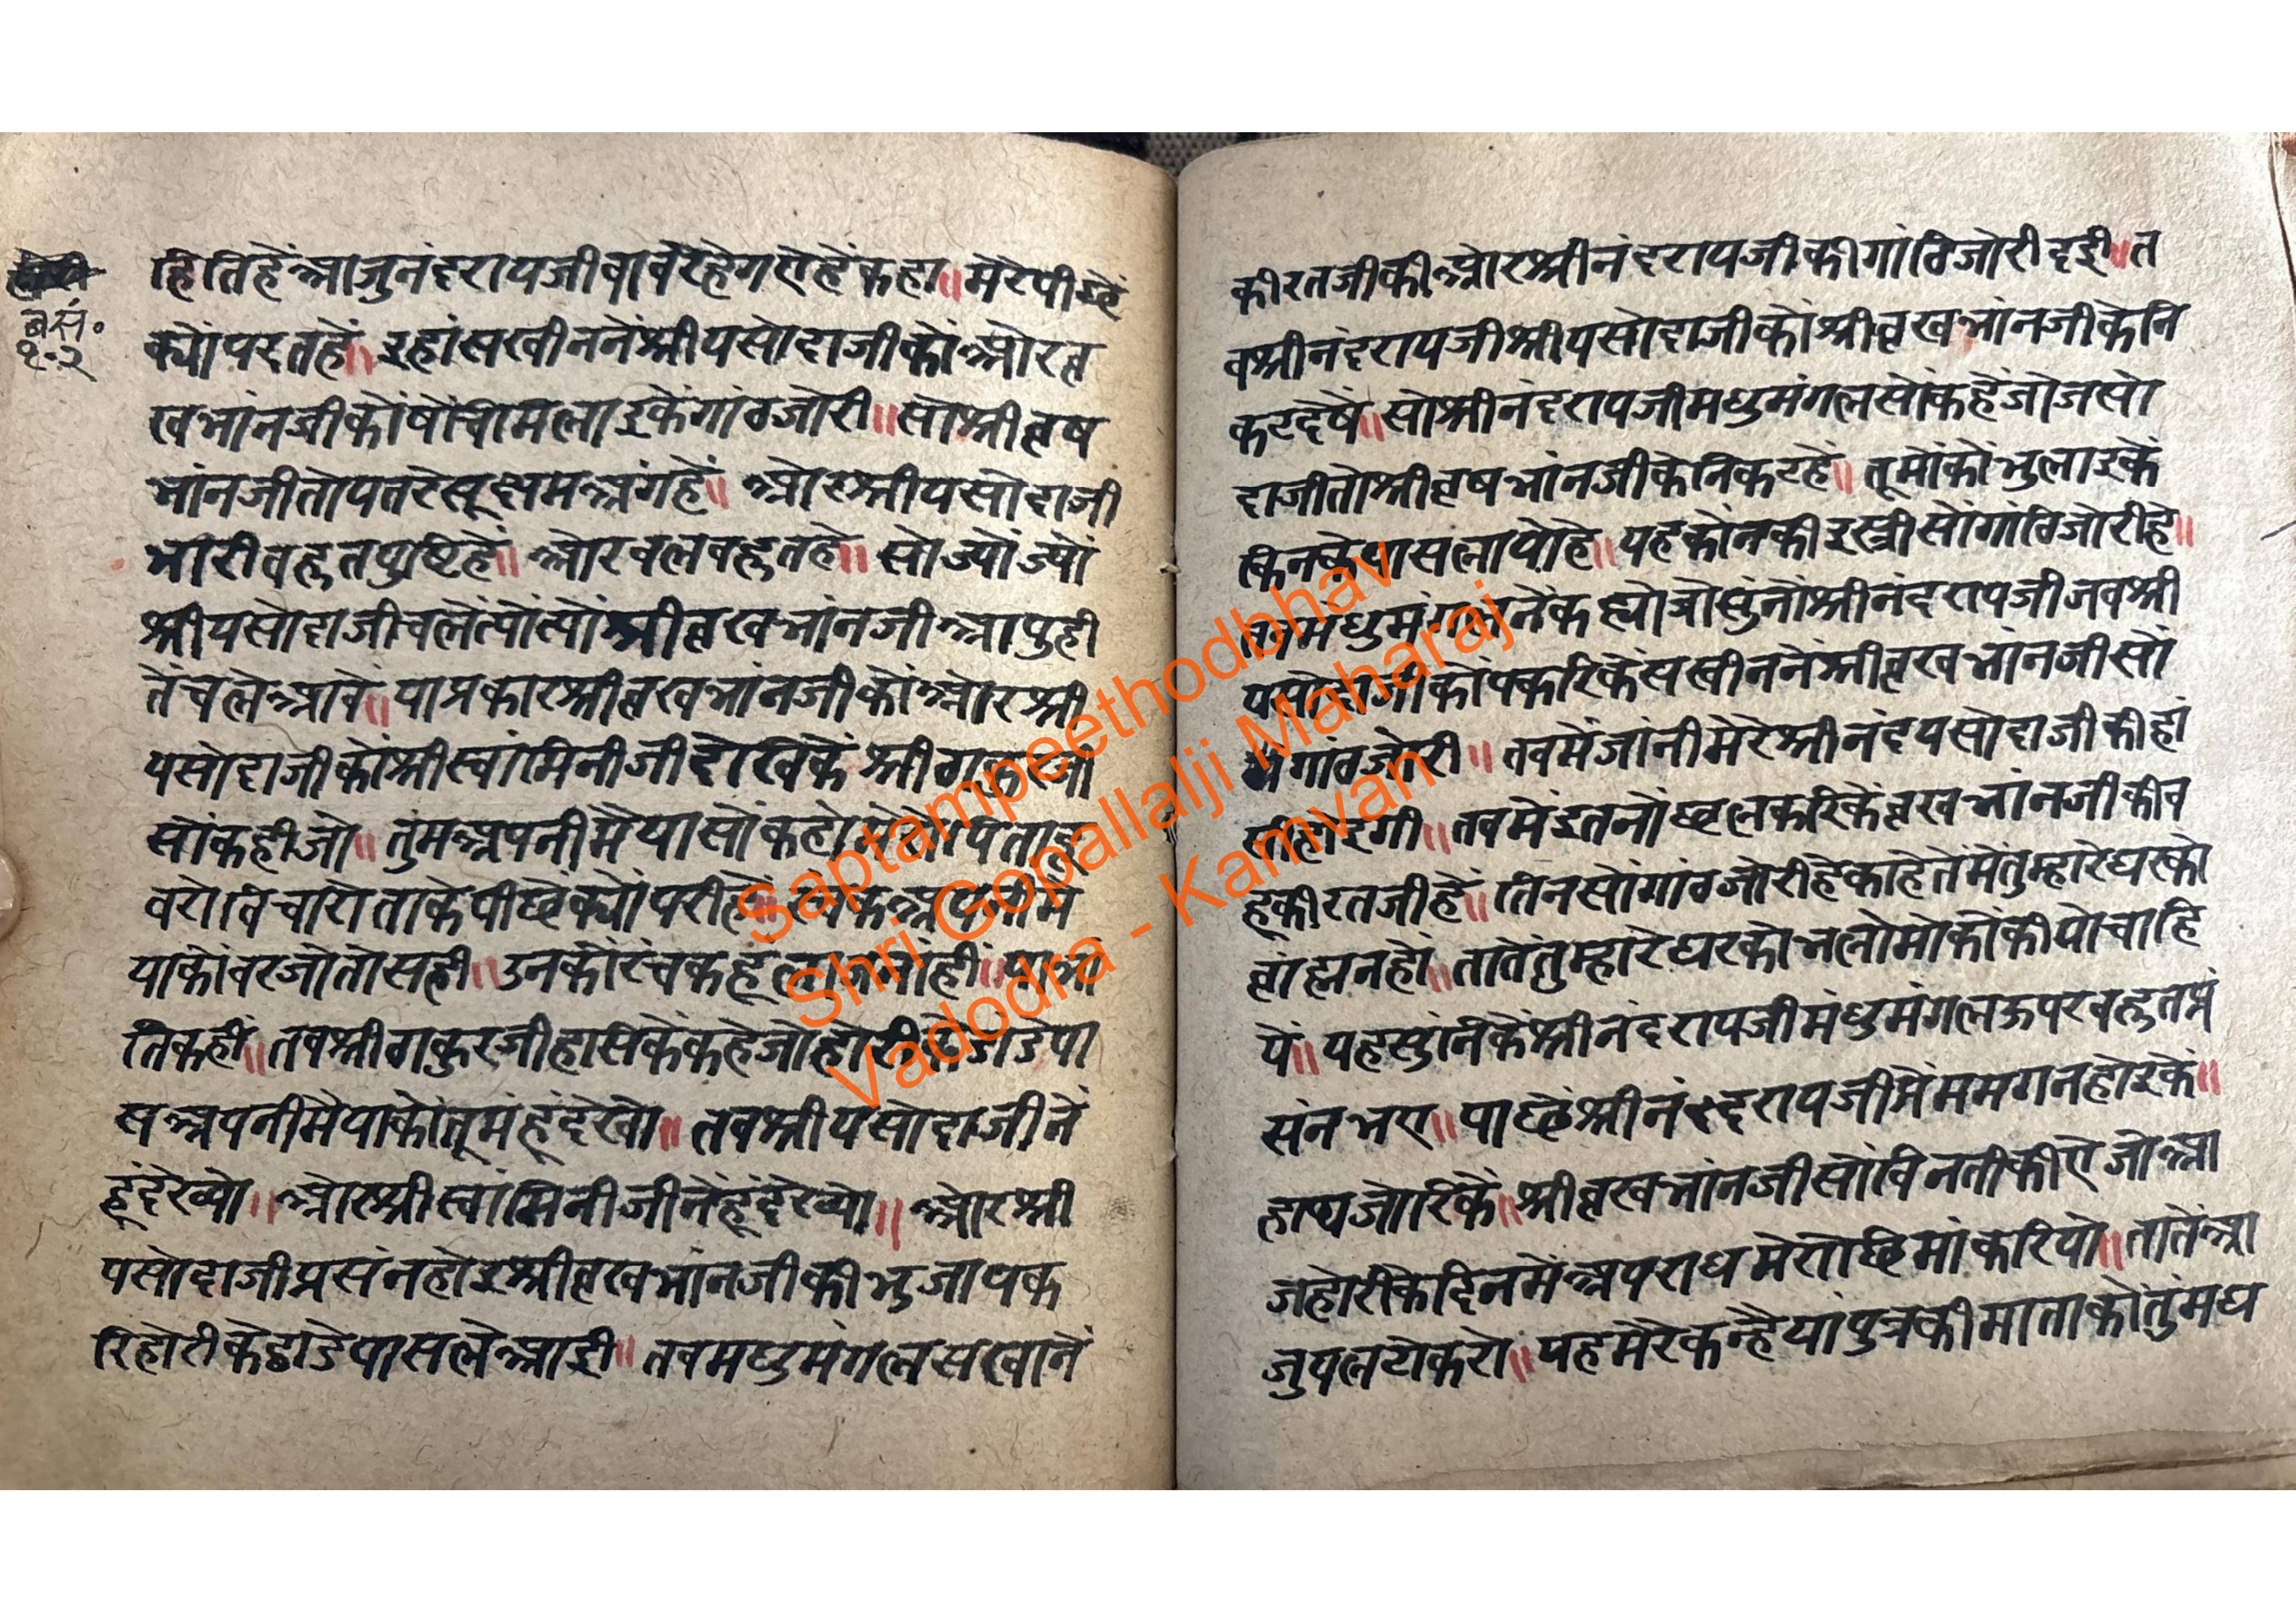 ब सं॰
१॰२
हितिहें आजुनंदरायजीबावरेहेगएहेंकहा॥ मेरेपीछें
क्योंपरतहें॥ इहांसखीननेंश्रीयसोदाजीकोंओरवृ
खभांनजीकोंषोंचीमिलाइकेंगांठजोरी॥ सोश्रीवृष
भांनजीतोपतरेसूक्षमअंगहें॥ ओरश्रीयसोदाजी
भारीबहुतपुष्टिहें॥ ओरबलबहुतहे॥ सोज्योंज्यों
श्रीयसोदाजीचलेंत्योंत्योंश्रीवृखभांनजीआपुही
तेंचलेआवें॥ याप्रकारश्रीवृखभांनजीकोंओरश्री
यसोदाजीकोंश्रीस्वांमिनीजीदेखिकें श्रीठाकुरजी
सोंकहीजो॥ तुंमअपनीमैयासोंकहो मेरोपिताहू
बरोबिचारोताकेपीछेंक्योंपरीहें॥ नेकअपनीमें
याकोंबरजोतोसही॥ उनकोंरंचकहूलाजनांही॥ याभां
तिकही॥ तबश्रीठाकुरजीहासिकेंकहेजोहोरीकेडांडेपा
सअपनीमैयाकोंतूमंहूंदेखो॥ तबश्रीयसोदाजीनें
हूंदेख्यो॥ ओरश्रीस्वांमिनीजीनेंहूंदेख्यो॥ ओरश्री
यसोदाजीप्रसंनहोइश्रीवृखभांनजीकीभुजापक
रिहोरीकेडांडेपासलेआई॥ तबमधुमंगलसखानें
कीरतजीकीओरश्रीनंदरायजीकीगांठिजोरीदई॥ त
बश्रीनंदरायजीश्रीयसोदाजीकोंश्रीवृखभांनजीकेनि
कटदेषें॥ सोश्रीनंदरायजीमधुमंगलसोंकहेंजोजसो
दाजीतोश्रीवृषभांनजीकेनिकटहें॥ तूमोंकोंभुलाइकें
किनकेपासलायोहे॥ यहकोंनकीइस्त्रीसोंगांठिजोरीहे॥
तबमधुमंगलनेंकह्योजोसुंनोंश्रीनंदरायजीजबश्री
यसोदाजीकोंपकरिकेंसखीननेंश्रीवृखभांनजीसों
गांठजोरी॥ तबमेंजांनीमेरेश्रीनंदयसोदाजीकीहां
सीहोइगी॥ तबमेंइतनोंछलकरिकेंवृखभांनजीकीब
हूकीरतजीहें॥ तिनसोंगांठजोरीहेकाहेतेंमेंतुम्हारेघरको
ब्रांह्मनहों॥ तातेंतुम्हारेघरकोभलोमोकोंकीयोचाहि
यें॥ यहसुंनिकेंश्रीनंदरायजीमधुमंगलऊपरबहुतप्रं
संनभए॥ पाछेंश्रीनंदरायजीप्रेंममगनहोइकें॥
हाथजोरिकें॥ श्रीवृखभांनजीसोंबिनतीकीएजोआ
जहोरीकेदिनमेंअपराधमेरोछिमांकरियो॥ तातेंआ
जुपलटोकरो॥ यहमेरेकन्हैयापुत्रकीमाताकोंतुंमघ